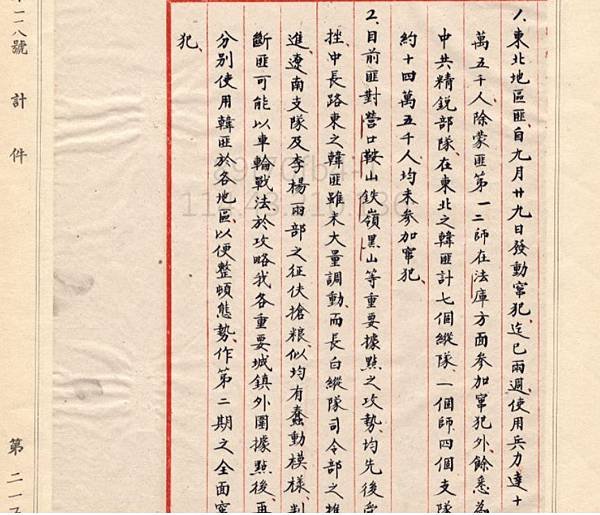 1.東北地區匪自九月廿九日發動竄犯、迄已兩週、使用兵力達十
萬五千人、除蒙匪第一二師在法庫方面參加竄犯外、餘悉為
中共精銳部隊、在東北之韓匪計七個縱隊、一個師、四個支隊
約十四萬五千人、均未參加竄犯、
2.目前匪對營口鞍山鐵嶺黑山等重要據點之攻勢、均先後受
挫、中長路東之韓匪雖未大量調動、而長白縱隊司令部之推
進、遼南支隊及李楊兩部之征伕搶粮、似均有蠢動模樣、判
斷匪可能以車輪戰法、於攻略我各重要城鎮外圍據點後、再
分別使用韓匪於各地區、以便整頓態勢、作第二期之全面竄
犯、
一一八號
計
件
第二一